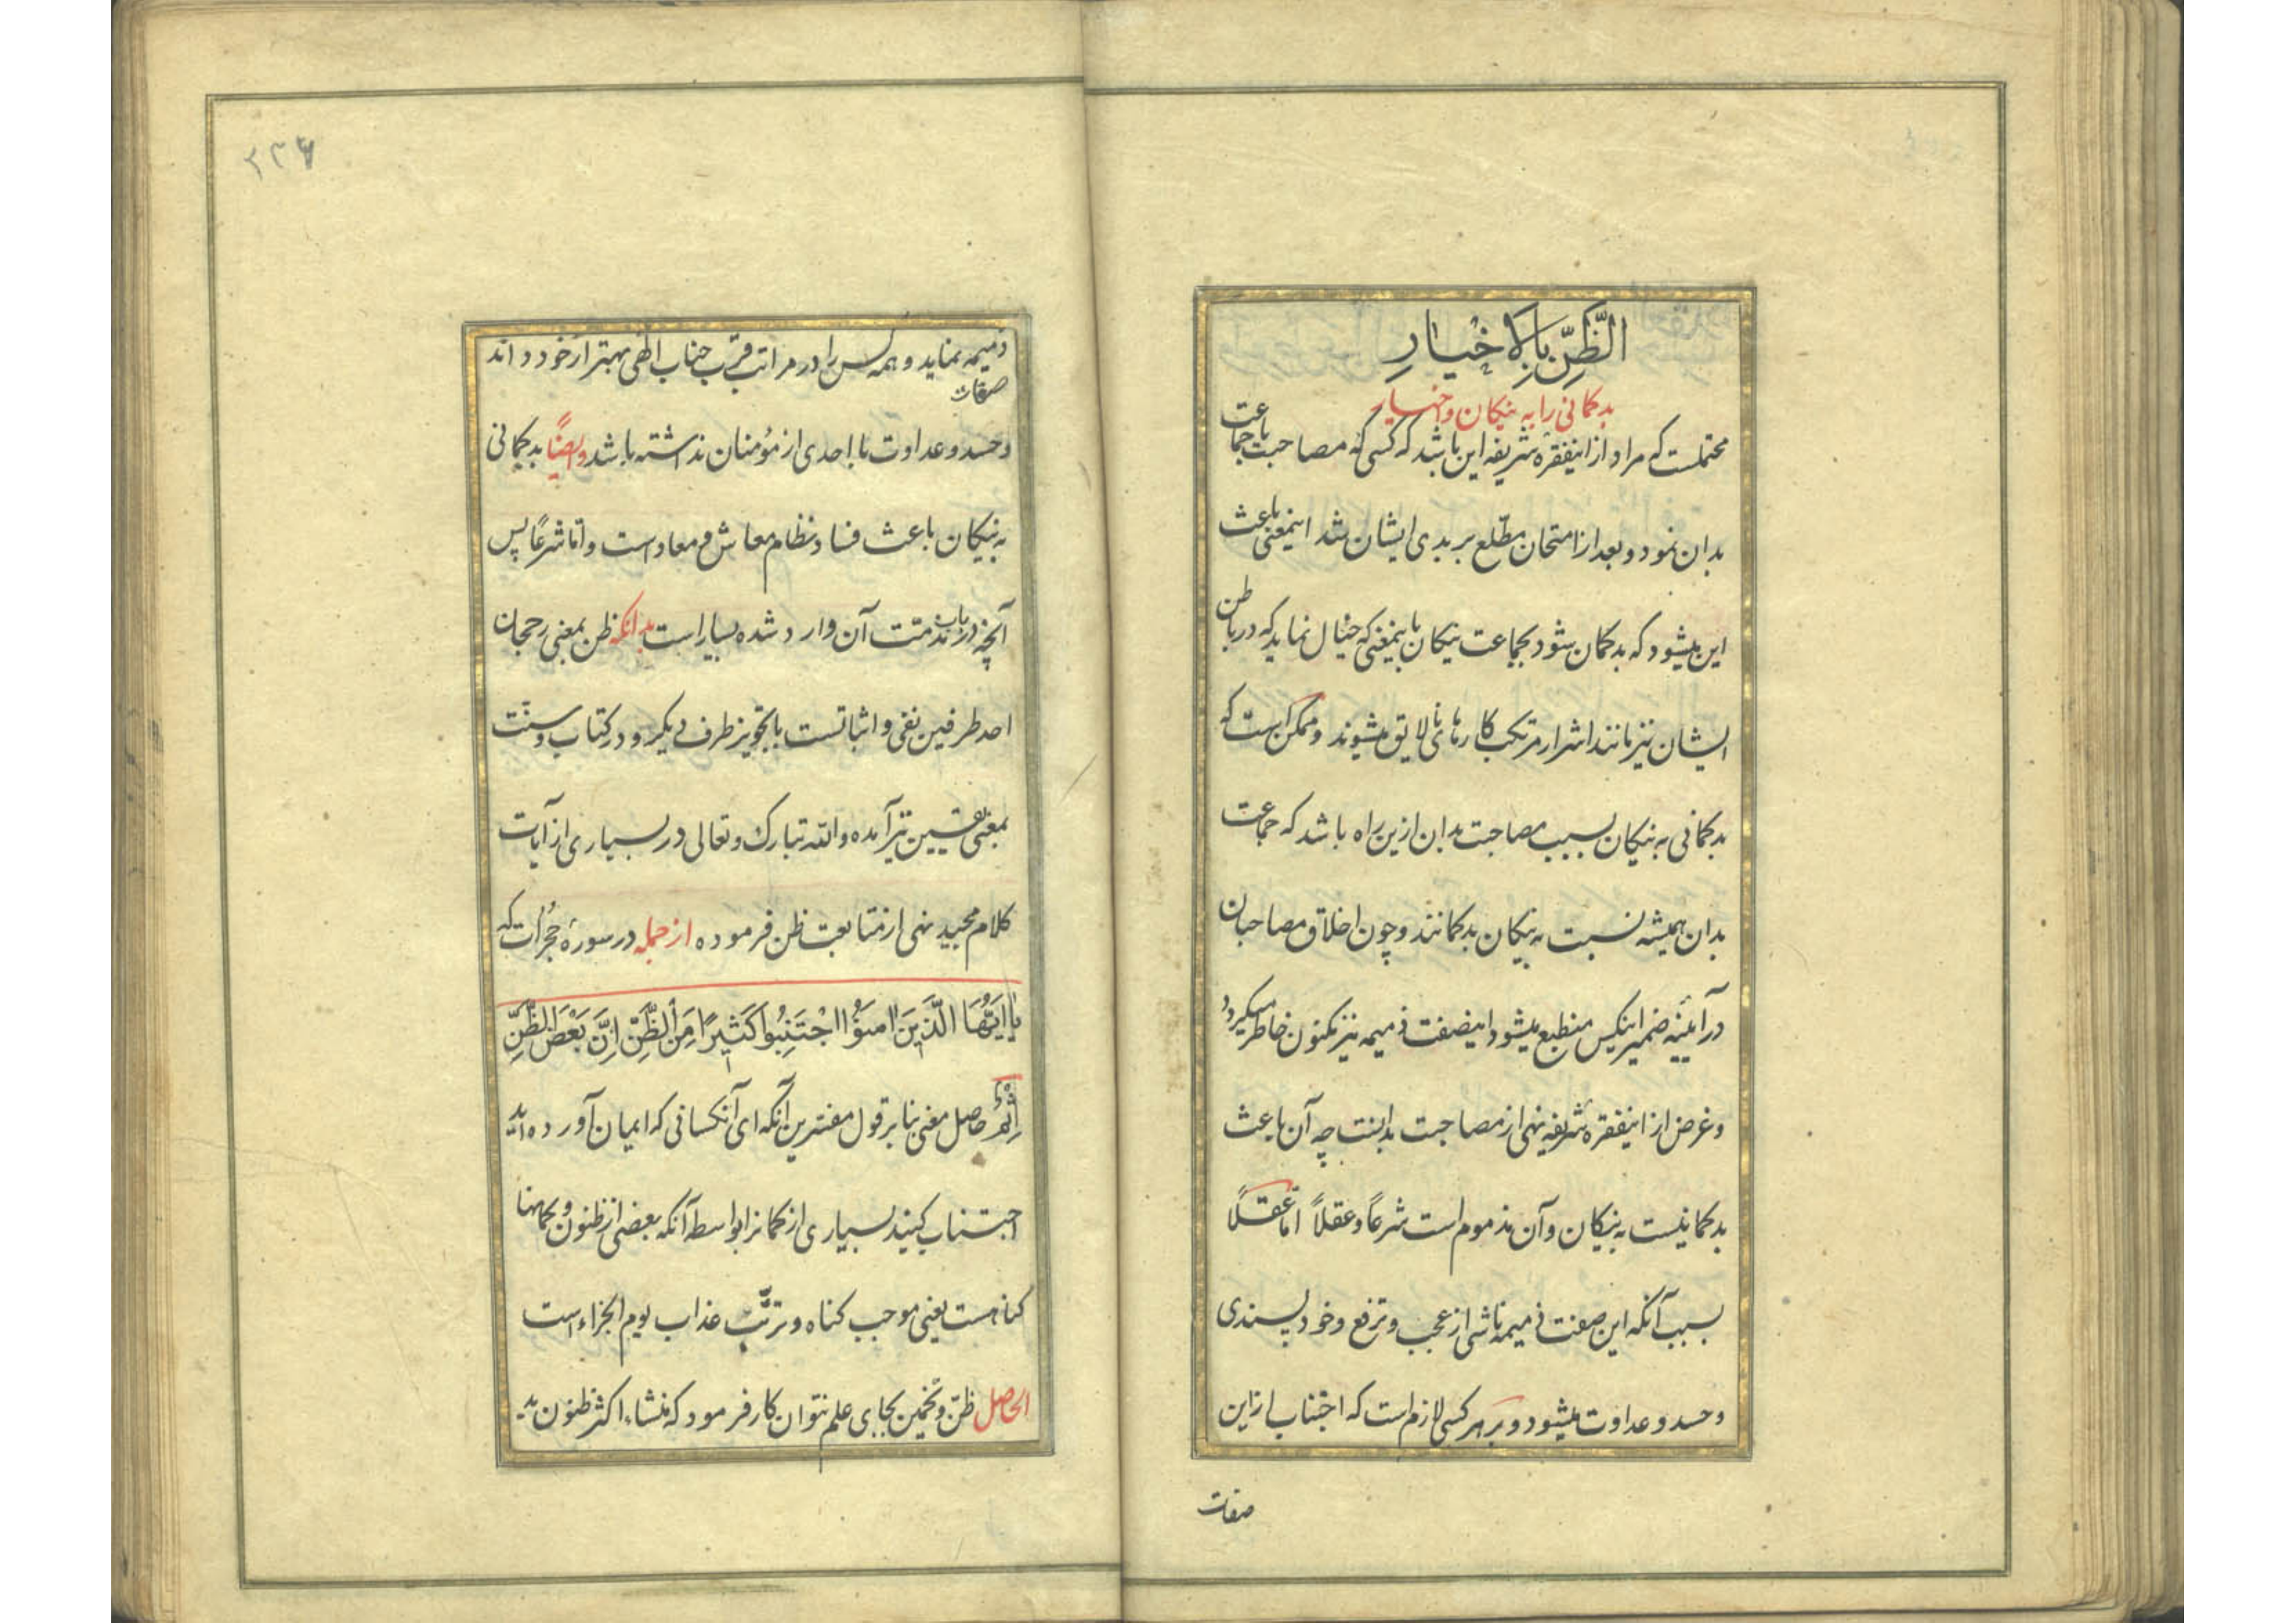 الظَّنِّ بِالْاَخْيٰارِ
بدکمانی را به نیکان و اخیار
محتملست که مراد از اینفقره شریفه این باشد که کسی که مصاحبت با جماعت
بدان نمود و بعد از امتحان مطّلع بر بدی ایشان شد اینمعنی باعث
این میشود که بدکمان شود بجماعت نیکان باینمعنی که خیال نماید که در باطن
ایشان نیز مانند اشرار مرتکب کارهای نالایق میشوند و ممکن است که
بدکمانی به نیکان بسبب مصاحبت بدان ازین راه باشد که جماعت
بدان همیشه نسبت به نیکان بدکمانند و چون اخلاق مصاحبان
در آیینه ضمیر اینکس منطبع میشود اینصفت ذمیمه نیز مکنون خاطر میکیرد
و غرض از اینفقره شریفه نهی از مصاحبت بدانست چه آن باعث
بدکمانیست به نیکان و آن مذموم است شرعاً و عقلاً امّا عقلاً
بسبب آنکه این صفت ذمیمه ناشی از عجب و ترفع و خودپسندی
و حسد و عداوت میشود و بر هر کسی لازم است که اجتناب از این
صفات
۲۲۶
ذمیمه نماید و همه کس را در مراتب قرب جناب الٰهی بهتر از خود داند
صفات
و حسد و عداوت با احدی از مؤمنان نداشته باشد و ایضاً بدکمانی
به نیکان باعث فساد نظام معاش و معاد است و امّا شرعاً پس
آنچه در باب مذمّت آن وارد شده بسیار است بدانکه ظن بمعنی رجحان
احد طرفین نفی و اثباتست با تجویز طرف دیکر و در کتاب و سنّت
بمعنی یقین نیز آمده و الله تبارک و تعالی در بسیاری از آیات
کلام مجید نهی از متابعت ظن فرموده از جمله در سورهٔ حجرات که
یٰا اَیُّهَا الَّذینَ اٰمَنُوا اجْتَنِبُوا کَثیرًا مِنَ الظَّنِّ اِنَّ بَعْضَ الظَّنِّ
اِثْمٌ حاصل معنی بنا بر قول مفسّرین آنکه ای آنکسانی که ایمان آورده اید
اجتناب کنید بسیاری از کمانرا بواسطه آنکه بعضی از ظنون و کمانها
کناهست یعنی موجب کناه و ترتّب عذاب یوم الجزاء است
الحاصل ظنّ و تخمین بجای علم نتوان کار فرمود که منشاء اکثر ظنون بد